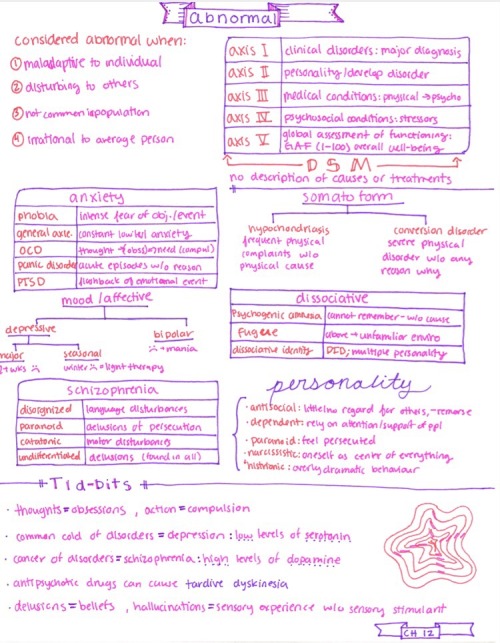 abnormal
considered abnormal when:
① maladaptive to individual
② disturbing to others
③ not common in population
④ irrational to average person
axis I clinical disorders: major diagnosis
axis II personality/develop disorder
axis III medical conditions: physical → psycho
axis IV psychosocial conditions: stressors
axis V global assessment of functioning:
GAF (1-100) overall well-being
DSM
no description of causes or treatments
anxiety
phobia intense fear of obj./event
general anxie. constant low lvl anxiety
OCD thought → (obs) → need (compul)
panic disorder acute episodes w/o reason
PTSD flashback of emotional event
somatoform
hypochondriasis
frequent physical
complaints w/o
physical cause
conversion disorder
severe physical
disorder w/o any
reason why
mood/affective
depressive
bipolar
major
2+ wks
seasonal
winter = light therapy
+ mania
dissociative
Psychogenic amnesia cannot remember - w/o cause
Fugue above → unfamiliar enviro
dissociative identity DID; multiple personality
schizophrenia
disorganized language disturbances
paranoid delusions of persecution
catatonic motor disturbances
undifferentiated delusions (found in all)
personality
• antisocial: little/no regard for others, - remorse
• dependent: rely on attention/support of ppl
• paranoid: feel persecuted
• narcissistic: oneself as center of everything
• histrionic: overly dramatic behaviour
Tid-bits
• thoughts = obsessions, action = compulsion
• common cold of disorders = depression: low levels of serotonin
• cancer of disorders = schizophrenia: high levels of dopamine
• antipsychotic drugs can cause tardive dyskinesia
• delusions = beliefs, hallucinations = sensory experience w/o sensory stimulant
CH 12